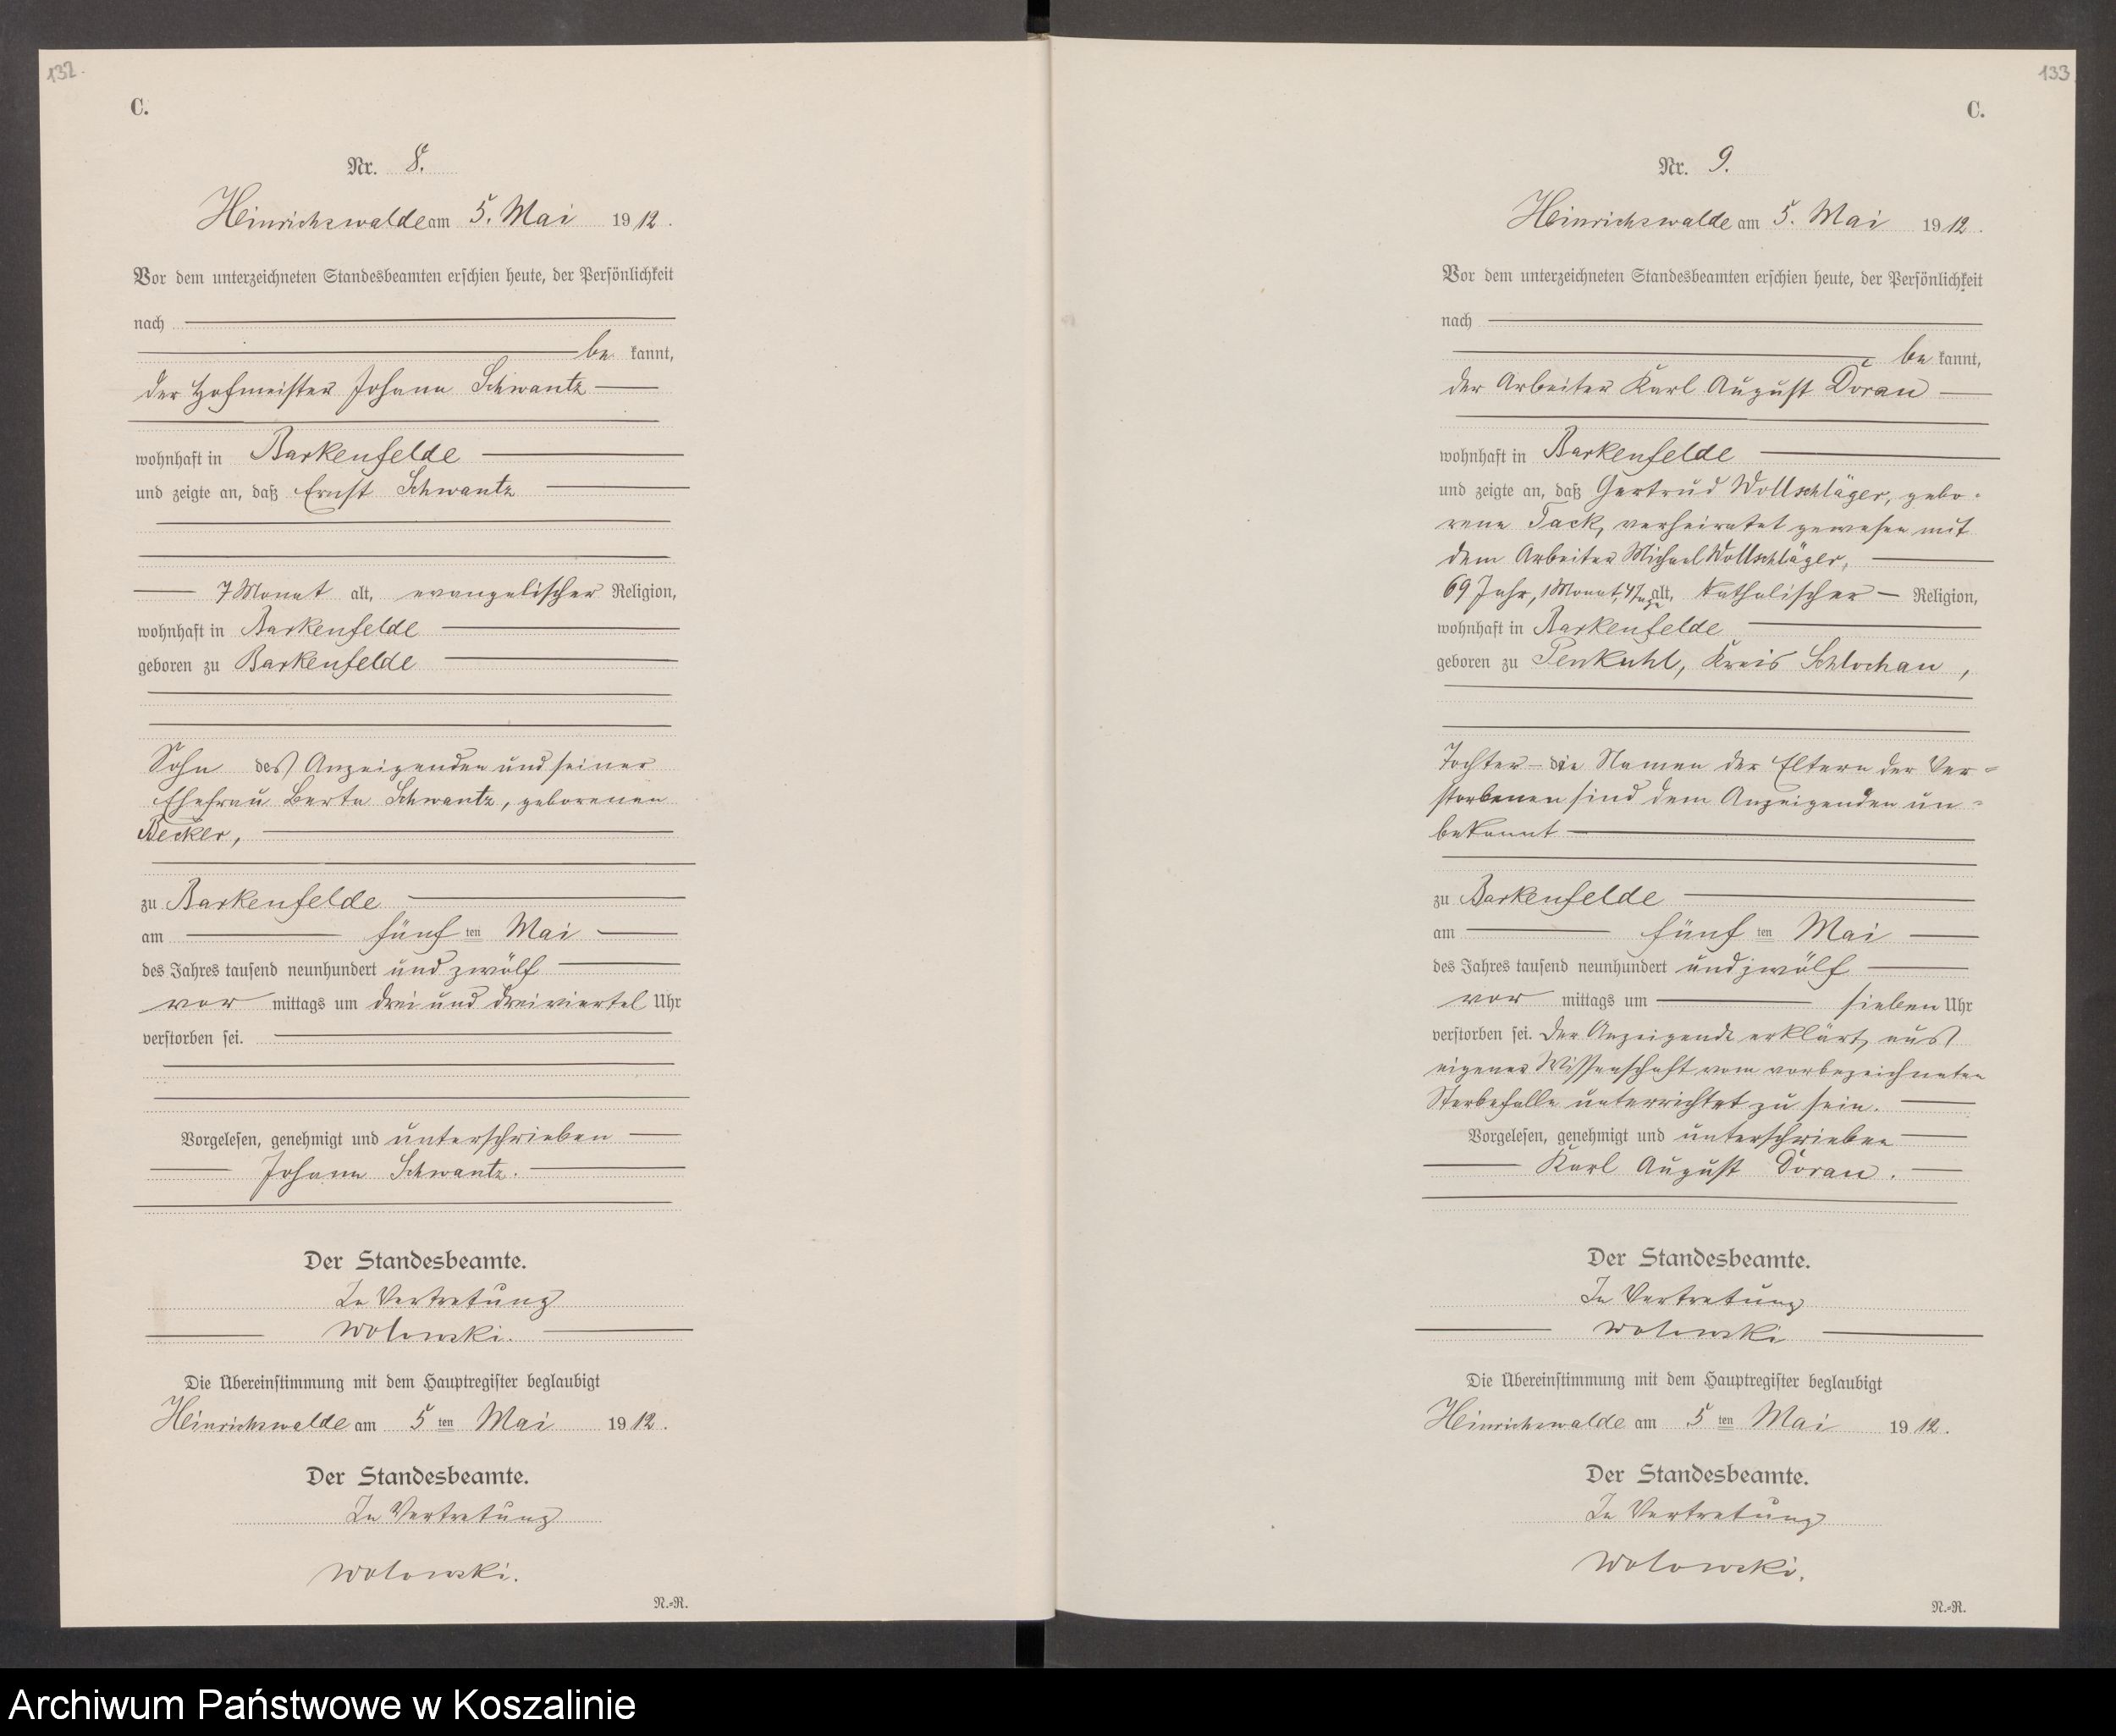 132.
C.
Nr. 8.
Heinrichswalde am 5. Mai 1912.
Vor dem unterzeichneten Standesbeamten erschien heute, der Persönlichkeit
nach
be kannt,
der Hofmeister Johann Schwantz
wohnhaft in Barkenfelde
und zeigte an, daß Ernst Schwantz
7 Monat alt, evangelischer Religion,
wohnhaft in Barkenfelde
geboren zu Barkenfelde
Sohn des Anzeigenden und seiner
Ehefrau Berta Schwantz, geborenen
Becker,
zu Barkenfelde
am fünf ten Mai
des Jahres tausend neunhundert und zwölf
vor mittags um drei und dreiviertel Uhr
verstorben sei.
Vorgelesen, genehmigt und unterschrieben
Johann Schwantz.
Der Standesbeamte.
In Vertretung
Wolowski.
Die Übereinstimmung mit dem Hauptregister beglaubigt
Heinrichswalde am 5 ten Mai 1912.
Der Standesbeamte.
In Vertretung
Wolowski.
N.-R.
133
C.
Nr. 9.
Heinrichswalde am 5. Mai 1912.
Vor dem unterzeichneten Standesbeamten erschien heute, der Persönlichkeit
nach
be kannt,
der Arbeiter Karl August Doran
wohnhaft in Barkenfelde
und zeigte an, daß Gertrud Wollschläger, gebo-
rene Tack, verheiratet gewesen mit
dem Arbeiter Michael Wollschläger,
69 Jahr, 1 Monat, 4 Tage alt, katholischer Religion,
wohnhaft in Barkenfelde
geboren zu Penkuhl, Kreis Schlochau,
Tochter - die Namen der Eltern der Ver-
storbenen sind dem Anzeigenden un-
bekannt
zu Barkenfelde
am fünf ten Mai
des Jahres tausend neunhundert und zwölf
vor mittags um sieben Uhr
verstorben sei. Der Anzeigende erklärt, aus
eigener Wissenschaft vom vorbezeichneten
Sterbefalle unterrichtet zu sein.
Vorgelesen, genehmigt und unterschrieben
Karl August Doran.
Der Standesbeamte.
In Vertretung
Wolowski
Die Übereinstimmung mit dem Hauptregister beglaubigt
Heinrichswalde am 5 ten Mai 1912.
Der Standesbeamte.
In Vertretung
Wolowski.
N.-R.
Archiwum Państwowe w Koszalinie